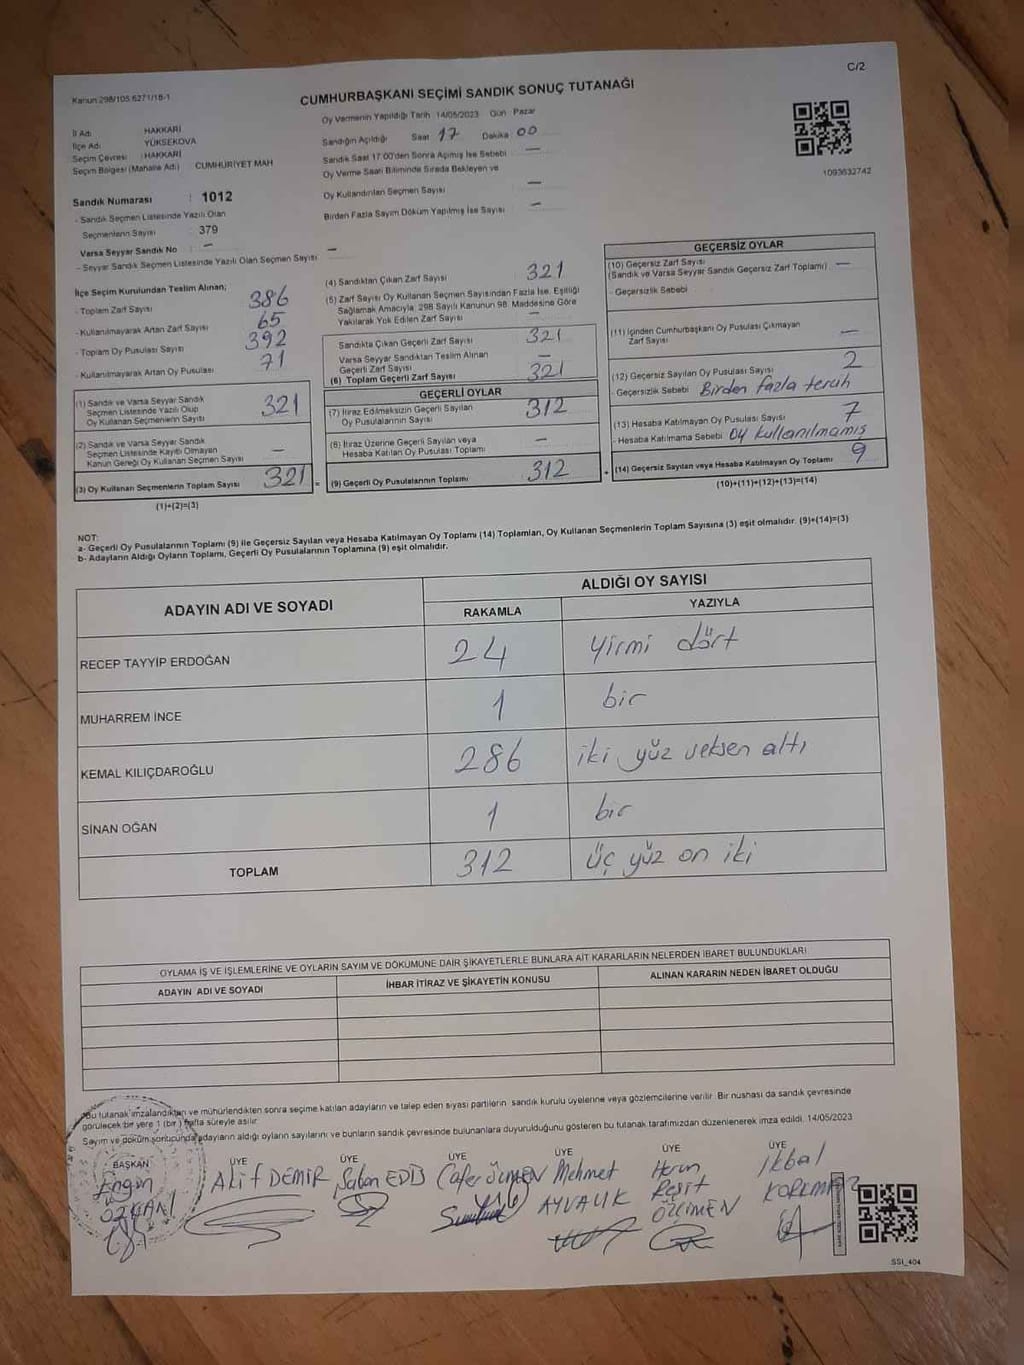 C/2
Kanun:298/105 6271/18-1
CUMHURBAŞKANI SEÇİMİ SANDIK SONUÇ TUTANAĞI
İl Adı : HAKKARİ
İlçe Adı : YÜKSEKOVA
Seçim Çevresi : HAKKARİ
Seçim Bölgesi (Mahalle Adı) : CUMHURİYET MAH
Sandık Numarası : 1012
- Sandık Seçmen Listesinde Yazılı Olan
Seçmenlerin Sayısı : 379
Varsa Seyyar Sandık No : —
- Seyyar Sandık Seçmen Listesinde Yazılı Olan Seçmen Sayısı : —
Oy Vermenin Yapıldığı Tarih 14/05/2023 Gün Pazar
Sandığın Açıldığı Saat 17 Dakika 00
Sandık Saat 17:00'den Sonra Açılmış İse Sebebi —
Oy Verme Saati Bitiminde Sırada Bekleyen ve
Oy Kullandırılan Seçmen Sayısı —
Birden Fazla Sayım Döküm Yapılmış İse Sayısı —
1093632742
İlçe Seçim Kurulundan Teslim Alınan;
- Toplam Zarf Sayısı 386
- Kullanılmayarak Artan Zarf Sayısı 65
- Toplam Oy Pusulası Sayısı 392
- Kullanılmayarak Artan Oy Pusulası 71
(1) Sandık ve Varsa Seyyar Sandık
Seçmen Listesinde Yazılı Olup
Oy Kullanan Seçmenlerin Sayısı 321
(2) Sandık ve Varsa Seyyar Sandık
Seçmen Listesinde Kayıtlı Olmayan
Kanun Gereği Oy Kullanan Seçmen Sayısı —
(3) Oy Kullanan Seçmenlerin Toplam Sayısı 321
(1)+(2)=(3)
(4) Sandıktan Çıkan Zarf Sayısı 321
(5) Zarf Sayısı Oy Kullanan Seçmen Sayısından Fazla İse, Eşitliği
Sağlamak Amacıyla, 298 Sayılı Kanunun 98. Maddesine Göre
Yakılarak Yok Edilen Zarf Sayısı —
Sandıkta Çıkan Geçerli Zarf Sayısı 321
Varsa Seyyar Sandıktan Teslim Alınan
Geçerli Zarf Sayısı —
(6) Toplam Geçerli Zarf Sayısı 321
GEÇERLİ OYLAR
(7) İtiraz Edilmeksizin Geçerli Sayılan
Oy Pusulalarının Sayısı 312
(8) İtiraz Üzerine Geçerli Sayılan veya
Hesaba Katılan Oy Pusulası Toplamı —
(9) Geçerli Oy Pusulalarının Toplamı 312
GEÇERSİZ OYLAR
(10) Geçersiz Zarf Sayısı
(Sandık ve Varsa Seyyar Sandık Geçersiz Zarf Toplamı) —
- Geçersizlik Sebebi
(11) İçinden Cumhurbaşkanı Oy Pusulası Çıkmayan
Zarf Sayısı —
(12) Geçersiz Sayılan Oy Pusulası Sayısı 2
- Geçersizlik Sebebi Birden fazla tercih
(13) Hesaba Katılmayan Oy Pusulası Sayısı 7
- Hesaba Katılmama Sebebi Oy kullanılmamış
(14) Geçersiz Sayılan veya Hesaba Katılmayan Oy Toplamı 9
(10)+(11)+(12)+(13)=(14)
NOT:
a- Geçerli Oy Pusulalarının Toplamı (9) ile Geçersiz Sayılan veya Hesaba Katılmayan Oy Toplamı (14) Toplamları, Oy Kullanan Seçmenlerin Toplam Sayısına (3) eşit olmalıdır. (9)+(14)=(3)
b- Adayların Aldığı Oyların Toplamı, Geçerli Oy Pusulalarının Toplamına (9) eşit olmalıdır.
ADAYIN ADI VE SOYADI
ALDIĞI OY SAYISI
RAKAMLA YAZIYLA
RECEP TAYYİP ERDOĞAN 24 yirmi dört
MUHARREM İNCE 1 bir
KEMAL KILIÇDAROĞLU 286 iki yüz seksen altı
SİNAN OĞAN 1 bir
TOPLAM 312 üç yüz on iki
OYLAMA İŞ VE İŞLEMLERİNE VE OYLARIN SAYIM VE DÖKÜMÜNE DAİR ŞİKAYETLERLE BUNLARA AİT KARARLARIN NELERDEN İBARET BULUNDUKLARI
ADAYIN ADI VE SOYADI İHBAR İTİRAZ VE ŞİKAYETİN KONUSU ALINAN KARARIN NEDEN İBARET OLDUĞU
"Bu tutanak imzalandıktan ve mühürlendikten sonra seçime katılan adayların ve talep eden siyasi partilerin sandık kurulu üyelerine veya gözlemcilerine verilir. Bir nüshası da sandık çevresinde
görülecek bir yere 1 (bir) hafta süreyle asılır.
Sayım ve döküm sonucunda adayların aldığı oyların sayılarını ve bunların sandık çevresinde bulunanlara duyurulduğunu gösteren bu tutanak tarafımızdan düzenlenerek imza edildi. 14/05/2023
BAŞKAN ÜYE ÜYE ÜYE ÜYE ÜYE ÜYE
Engin ÖZKAN
Akif DEMİR
Şaban EDİS
Cafer
Mehmet AYVALIK
Harun Reşit ÖLÇMEN
İkbal KORKMAZ
SSİ_404